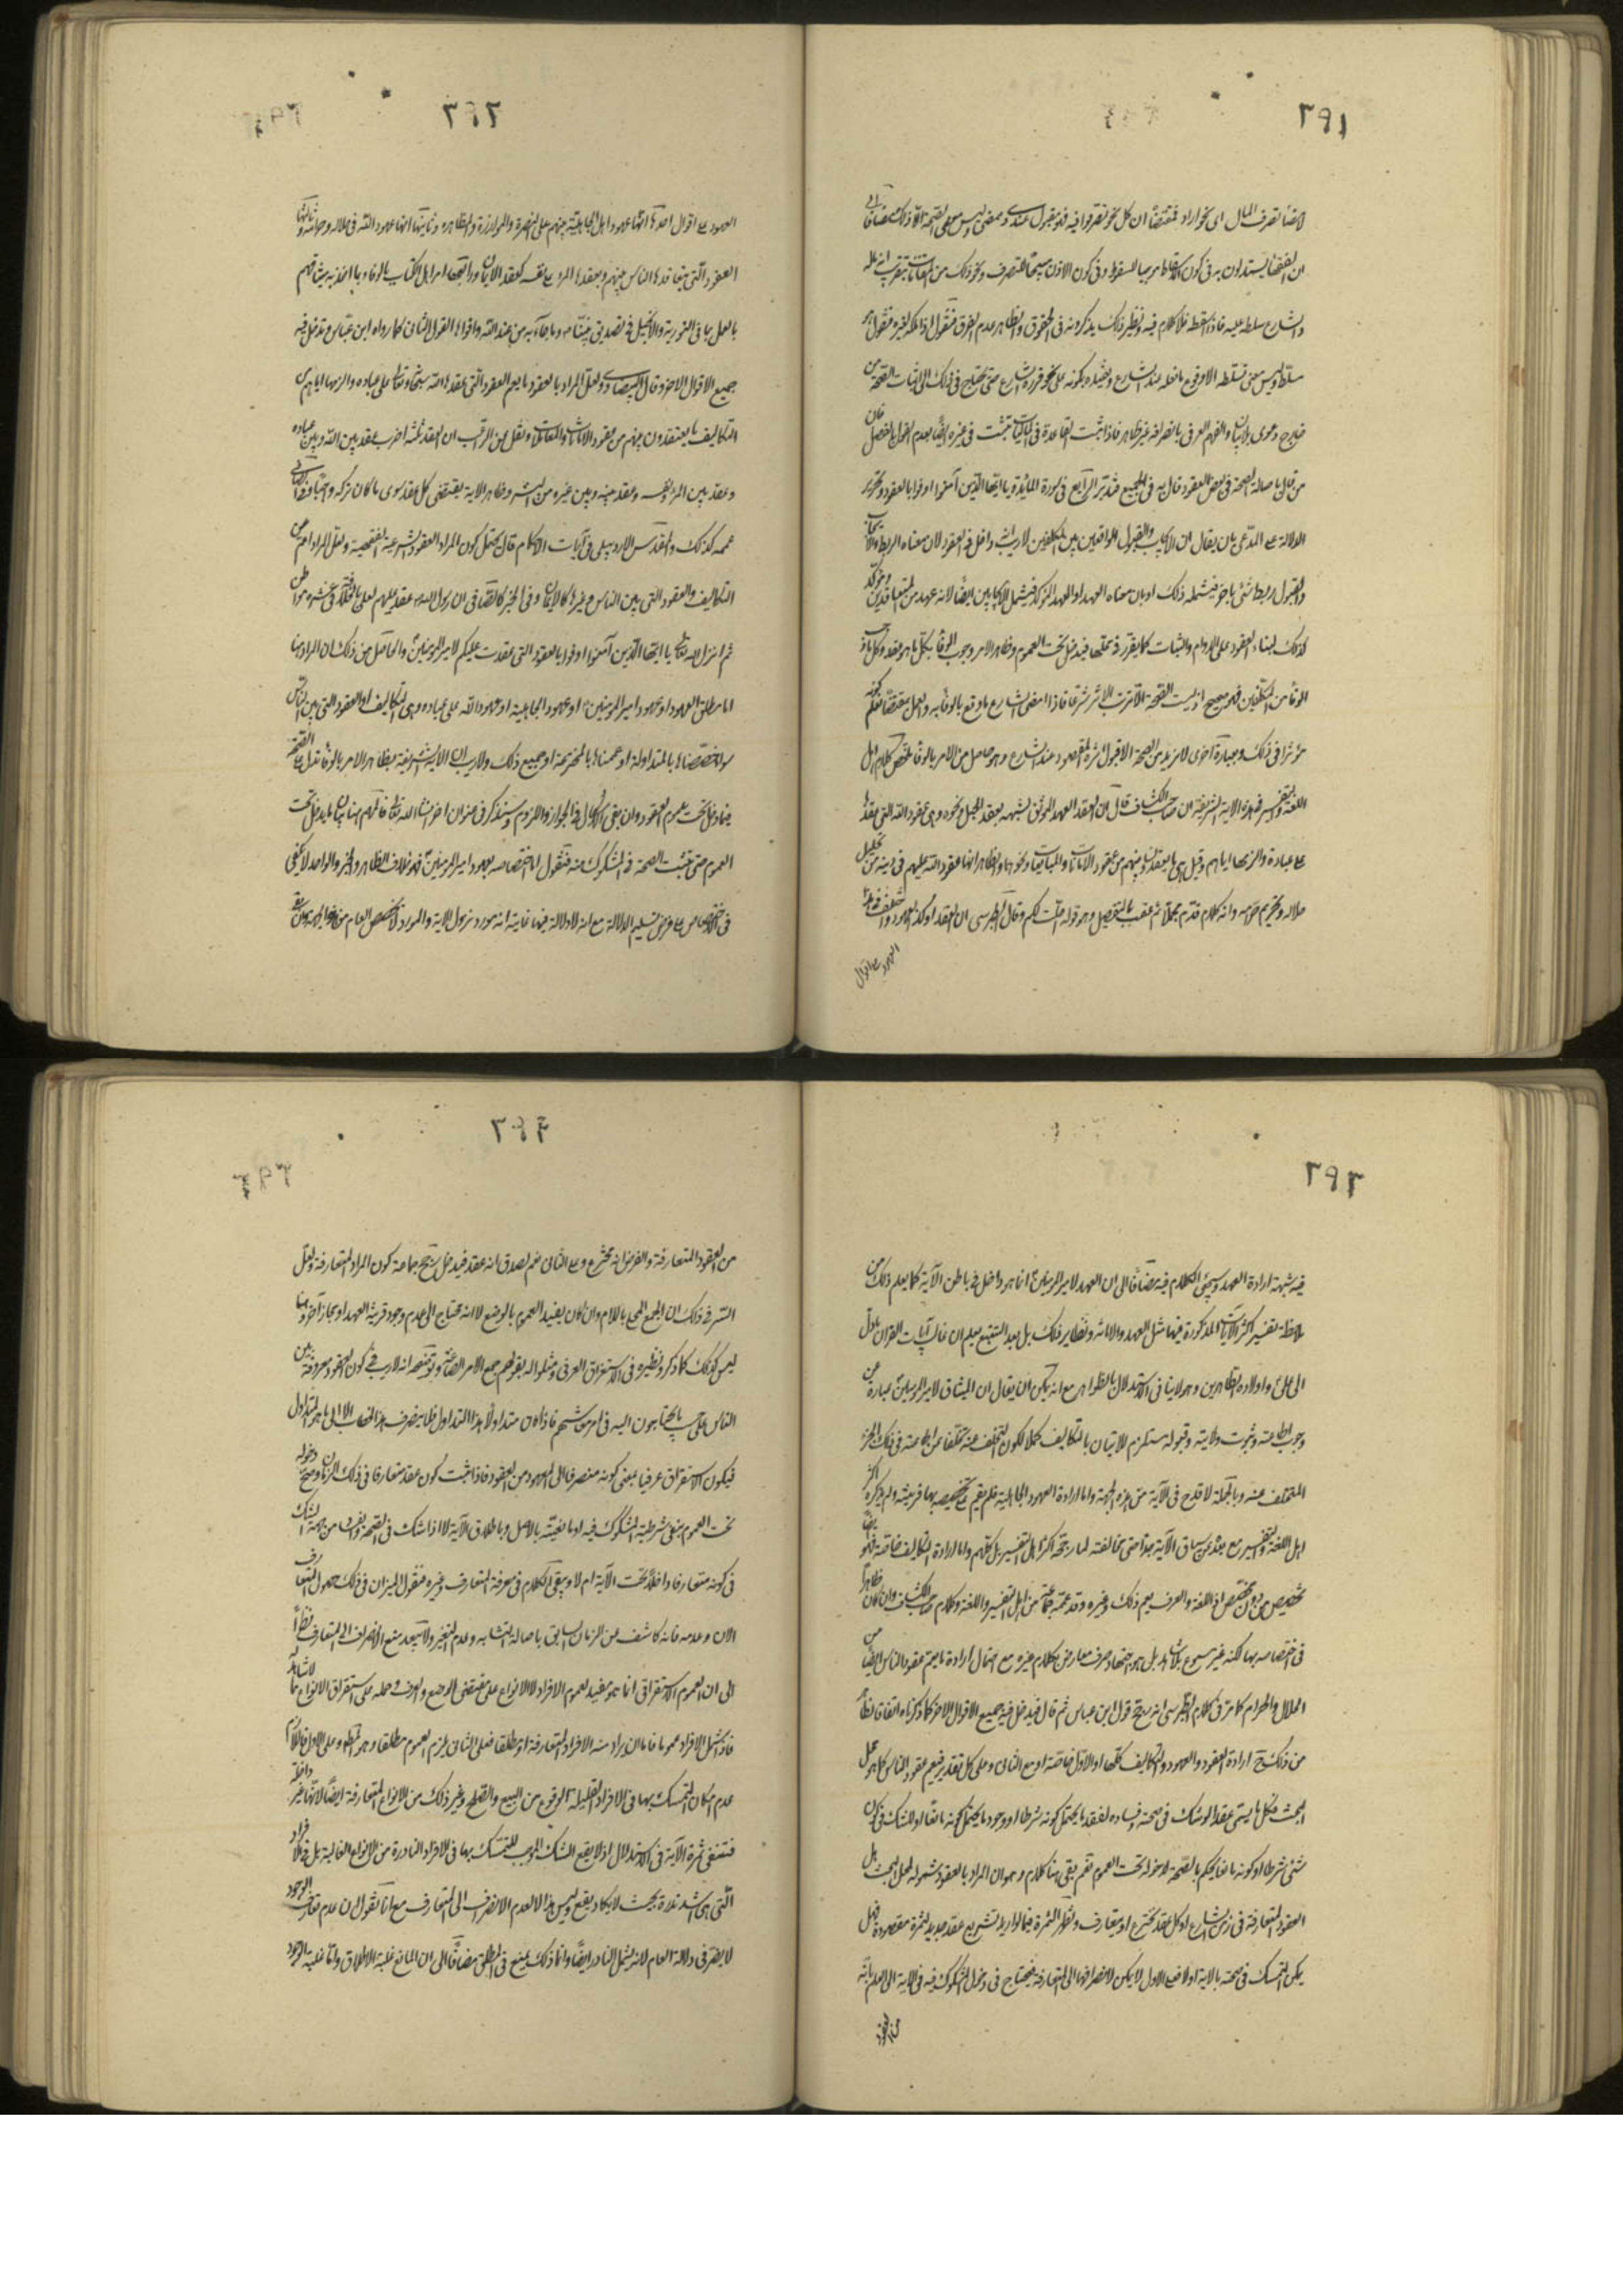 ٢٩١
لامضاء تصرف المال اى نحو اراد فمقتضاه ان كل نحو تصرفوا فيه فهو مقبول عندى وممضى وليس معنى الصحة الا ذلك مضافا الى
ان الفقهاء يستدلون به فى كون الاسقاط موجبا للسقوط وفى كون الاذن مبيحا للتصرف ونحو ذلك من
والشارع سلطه عليه فاذا اسقطه فلا كلام فيه ونظير ذلك يذكرونه فى الحقوق والظاهر عدم الفرق فنقول اذا ملكه لغيره فنقول
سلطه وليس معنى تسلطه الا وقوع ما فعله عند الشارع وتقييده بكونه على نحو قرره الشارع حتى يحتاج فى ذلك الى اثبات الصحة من
خارج دعوى بلا بيان والفهم العرفى بانصرافه غير ظاهر فاذا ثبت القاعدة فى تثبت فى غيره ايضا بعدم القول بالفصل فان
من قال باصالة الصحة فى بعض العقود قال به فى الجميع فتدبر الرابع فى سورة المائدة يا ايها الذين آمنوا اوفوا بالعقود وتحرير
الدلالة على المدعى بان يقال ان الايجاب والقبول الواقعين بين المكلفين لا ريب انه داخل فى العقود لان معناه الربط والايجاب
والقبول ربط شئ باخر فيشمله ذلك او بان معناه العهد او العهد المؤكد فيشمل الايجابين ايضا لانه عهد من المتعاقدين ومؤكد
كذلك لبناء العقود على الدوام والثبات كما يقرر فى محلها فيدخل تحت العموم وظاهر الامر وجوب الوفاء بكل ما هو عقد وكل ما يجب
الوفاء من المكلفين فهو صحيح اذ ليست الصحة الا ترتب الاثر شرعا فاذا امضى الشارع ما وقع بالوفاء به والعمل بمقتضاه فكم بكونه
مؤثرا فى ذلك وبعبارة اخرى لا نريد من الصحة الا قبول اثره المقصود عند الشارع وهو حاصل من الامر بالوفاء ملخص كلام اهل
اللغة والتفسير فى هذه الاية الشريفة ان صاحب الكشاف قال ان العقد العهد الموثق لشبهه بعقد الحبل ونحوه وهى عقود الله التى عقدها
على عباده والزمها اياهم وقيل هى ما يعقدون بينهم من عقود الامانات والمبايعات ونحوها والظاهر انها عقود الله عليهم فى دينه من تحليل
حلاله وتحريم حرامه وانه كلام قدم مجملا ثم عقب بالتفصيل وهو قوله احلت لكم وقال الطبرسى ان العقد اوكد العهود واختلف فى هذه
العهود على اقوال
٢٩٢
العهود على اقوال احدها انها عهود اهل الجاهلية بينهم على النصرة والموازرة والمظاهرة وثانيها انها عهود الله فى حلاله وحرامه وثالثها
العقود التى يتعاقدها الناس بينهم ويعقدها المرء على نفسه كعقد الايمان ورابعها امر اهل الكتاب بالوفاء بما اخذ به ميثاقهم
بالعمل بما فى التورية والانجيل فى تصديق نبينا ص وما جاء به من عند الله واقواها القول الثانى كما رواه ابن عباس وتدخل فيه
جميع الاقوال الاخر وقال البيضاوى ولعل المراد بالعقود ما يعم العقود التى عقدها الله سبحانه وتعالى على عباده والزمها اياهم من
التكاليف وما يعتقدون بينهم من عقود الامانات والمعاملات ونقل عن الراغب ان العقد ثلثة اضرب عقد بين الله وبين عباده
وعقد بين المرء ونفسه وعقد بينه وبين غيره من البشر وظاهر الاية يقتضى كل عقد سوى ما كان تركه واجبا
عممه كذلك والمقدس الاردبيلى فى آيات الاحكام قال يحتمل كون المراد العقود الشرعية الفقهية ولعل المراد اعم من
التكاليف والعقود التى بين الناس وغيرها كالايمان وفى الخبر كالصافى ان رسول الله ص عقد عليهم لعلى بالخلافة فى عشرة مواطن
ثم انزل الله تعالى يا ايها الذين آمنوا اوفوا بالعقود التى عقدت عليكم لامير المؤمنين ع والحاصل من ذلك ان المراد بها
اما مطلق العهود او عهود امير المؤمنين ع او عهود الجاهلية او عهود الله على عباده وهى التكاليف او العقود التى بين الناس
سواء خصصناها بالمتداولة او عممناها بالمخترعة او جميع ذلك ولا ريب ان الاية الشريفة بظاهر الامر بالوفاء تدل على الصحة
فيما دخل تحت عموم العقود وان بقى الاشكال فى الجواز واللزوم وسنذكر فى عنوان اخر انشاء الله تعالى فالمهم هنا بيان ما يدخل تحت
العموم حتى تثبت الصحة فى المشكوك منه فنقول اما اختصاصه بعهود امير المؤمنين ع فهو خلاف الظاهر والخبر الواحد لا يكفى
فى الاختصاص على فرض تسليم الدلالة مع انه لا دلالة فيها غاية انه مورد نزول الاية والمورد لا يخصص العام
٢٩٣
فيه شبهة ارادة العهد وسيجئ الكلام فيه مضافا الى ان العهد لامير المؤمنين ع انما هو داخل فى باطن الآية كما يعلم ذلك من
ملاحظة تفسير اكثر الآيات المذكورة فيها مثل العهد والامانة ونظاير ذلك بل بعد التتبع يعلم ان غالب آيات القران مأول
الى على ع واولاده الطاهرين وهو لا ينافى الاستدلال بالظواهر مع انه يمكن ان يقال ان الميثاق لامير المؤمنين ع عبارة عن
وجوب اطاعته وثبوت ولايته وقبوله مستلزم للاتيان بالتكاليف كملا لكون التخلف عنه تخلفا عن اطاعته فى ذلك الجزء
المتخلف عنه وبالجملة لا قدح فى الآية من هذه الجهة واما ارادة العهود الجاهلية فلم يقم على تخصيصه بها قرينة ولم يذكره اكثر
اهل اللغة والتفسير مع بعده عن سياق الآية جدا حتى مخالفته لما رجحه اكثر اهل التفسير بل كلهم واما ارادة التكاليف خاصة فهو ايضا
تخصيص من دون مخصص اذ اللغة والعرف يعم ذلك وغيره وقد عممه جماعة من اهل التفسير واللغة وكلام صاحب الكشاف وان كان ظاهرا
فى اختصاصه بها لكنه غير مسموع بلا شاهد بل هو اجتهاد صرف معارض بكلام غيره مع احتمال ارادة ما يعم عقود الناس ايضا من
الحلال والحرام كما مر فى كلام الطبرسى انه رجح قول ابن عباس ثم قال فيدخل فيه جميع الاقوال الاخر كما ذكرناه
من ذلك ح ارادة العقود والعهود والتكاليف كلها او الاول خاصة او مع الثانى وعلى كل تقدير فيعم عقود الناس كما هو محل
البحث فكل ما يسمى عقدا لو شك فى صحته وفساده لفقد ما يحتمل كونه شرطا او وجود ما يحتمل كونه مانعا او للشك فى كون
شئ شرطا او كونه مانعا يحكم بالصحة لدخوله تحت العموم نعم بقى هنا كلام وهو ان المراد بالعقود شموله لمحل البحث هل
العقود المتعارفة فى زمن الشارع او كل عقد مخترع او متعارف وتظهر الثمرة فيما لو اريد تشريع عقد جديد لثمرة مقصودة فهل
يمكن التمسك فى صحته بالاية او لا فعلى الاول لا يمكن لانصرافها الى المتعارفة فيحتاج فى دخول المشكوك فيه فى الاية الى العلم بانه
من العقود
٢٩٤
من العقود المتعارفة والفرض انه مخترع وعلى الثانى نعم لصدق انه عقد فيدخل رجح جماعة كون المراد المتعارفة ولعل
السر فى ذلك ان الجمع المحلى باللام وان كان يفيد العموم بالوضع الا انه محتاج الى عدم وجود قرينة العهد او مجاز آخر وهنا
ليس كذلك كما ذكروا نظيره فى الاستغراق العرفى ومثلوا له بقولهم جمع الامير الصاغة وتوضيحه انه لا ريب فى كون العقود معروفة بين
الناس على حسب ما يحتاجون اليه فى امر معاشهم فاذا كان متداولا هذا التداول فلما ينصرف هذا الخطاب الا الى ما هو المتداول
فيكون الاستغراق عرفيا بمعنى كونه منصرفا الى المعهود من العقود فاذا ثبت كون عقد متعارفا فى ذلك الزمان وصح دخوله
تحت العموم ينفى شرطية المشكوك فيه او مانعيته بالاصل وباطلاق الآية لا اذا شك فى الصحة والفساد من جهة الشك
فى كونه متعارفا داخلا تحت الآية ام لا ويبقى الكلام فى معرفة المتعارف وغيره فنقول الميزان فى ذلك حصول التعارف
الان وعدمه فانه كاشف عن الزمان السابق باصالة التشابه وعدم التغير ولا يبعد منع الانصراف الى المتعارف نظرا
الى ان العموم الاستغراقى انما هو مفيد لعموم الافراد لا الانواع على مقتضى الوضع والعرف وحمله على استغراق الانواع مما لا شاهد له
فاذا شمل الافراد عموما فاما ان يراد منه الافراد المتعارفة او مطلقا فعلى الثانى يلزم العموم مطلقا وهو المطلوب وعلى الاول فاللازم
عدم امكان التمسك بها فى الافراد القليلة الوقوع من البيع والصلح وغير ذلك من الانواع المتعارفة ايضا لانها غير داخلة
فتنتفى ثمرة الآية فى الاستدلال اذ لا يقع الشك الموجب للتمسك بها الا فى الافراد النادرة من الانواع الغالبة بل فى افراد
التى هى اشد ندرة بحيث لا يكاد يقع وليس هذا الا لعدم الانصراف الى المتعارف مع انا نقول ان عدم تعارف الوجود
لا يضر فى دلالة العام لانه يشمل النادر ايضا وانما ذلك يمنع فى المطلق مضافا الى ان المانع غلبة الاطلاق واما غلبة الوجود